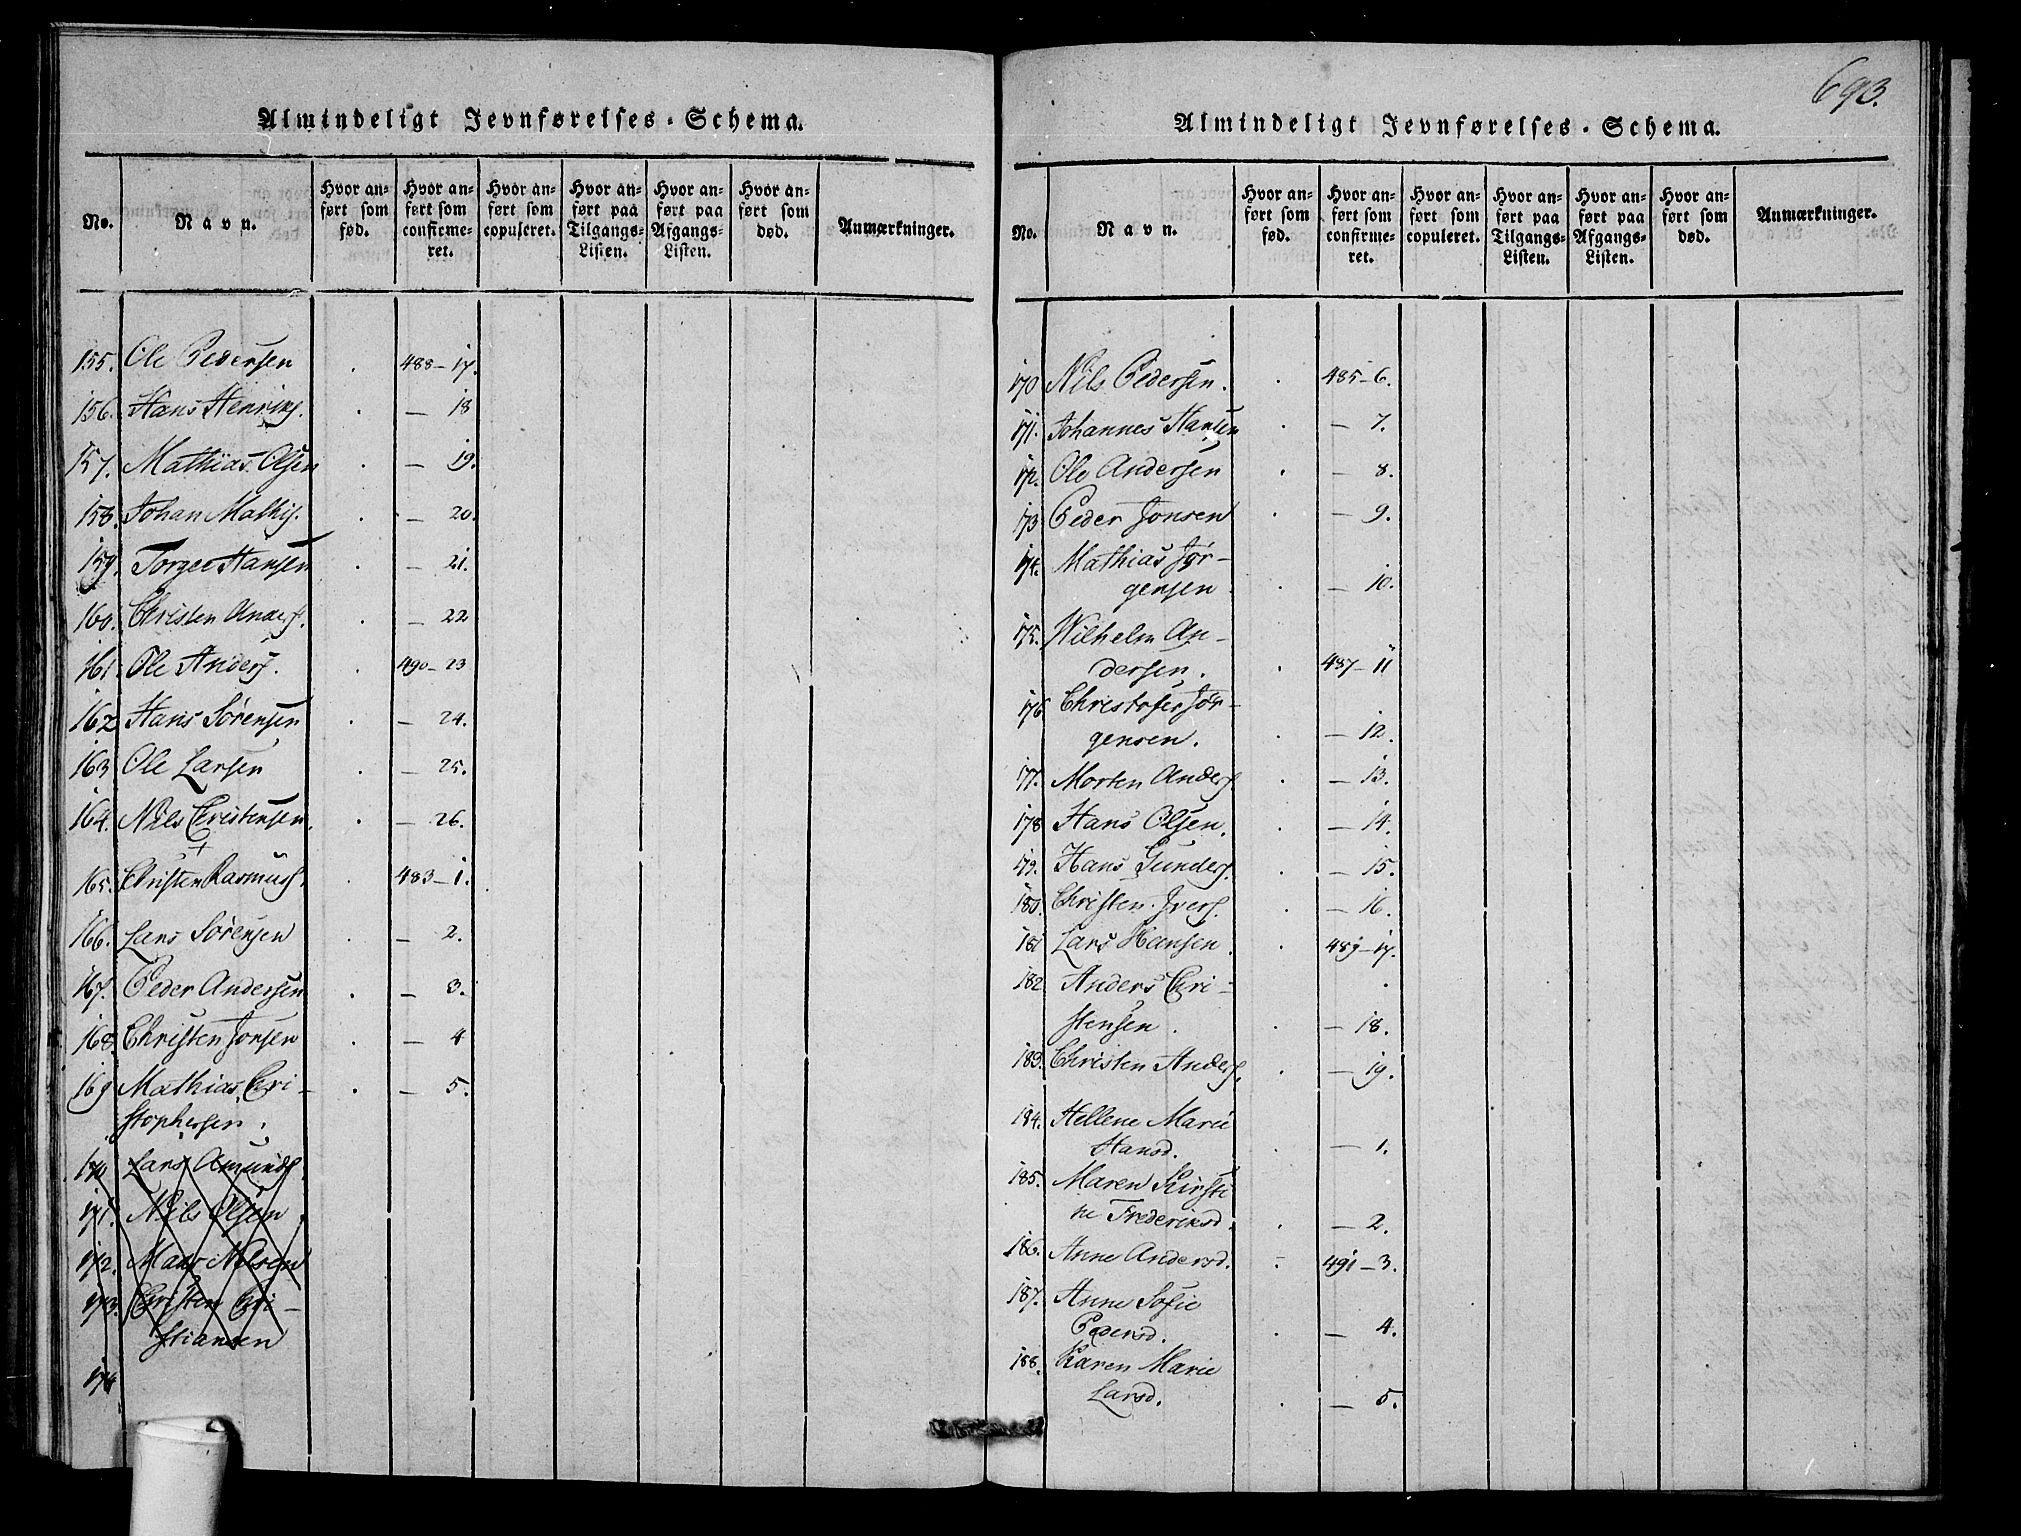 Almindeligt Jevnførelses-Schema.
No. Navn. Hvor anført som fød. Hvor anført som confirmeret. Hvor anført som copuleret. Hvor anført paa Tilgangs-Listen. Hvor anført paa Afgangs-Listen. Hvor anført som død. Anmærkninger.
155. Ole Pedersen 488-17.
156. Hans Henriks. — 18
157. Mathias Olsen — 19.
158. Johan Mathis. — 20.
159. Torger Hansen — 21.
160. Christen Anders. — 22
161. Ole Anders. 490-23
162 Hans Sørensen — 24.
163 Ole Larsen — 25.
164. Nils Christensen. — 26.
165. Christen Rasmus. 483-1.
166. Lars Sørensen — 2.
167. Peder Andersen — 3.
168. Christen Jonsen — 4
169 Mathias Chri- — 5.
stophersen.
170 Lars Amunds.
171. Nils Olsen
172. Mads Nilsen
173. Christen Chri-
stiansen
174
693.
Almindeligt Jevnførelses-Schema.
No. Navn. Hvor anført som fød. Hvor anført som confirmeret. Hvor anført som copuleret. Hvor anført paa Tilgangs-Listen. Hvor anført paa Afgangs-Listen. Hvor anført som død. Anmærkninger.
170 Nils Pedersen. 485-6.
171. Johannes Hansen — 7.
172. Ole Andersen — 8.
173 Peder Jonsen — 9.
174. Mathias Jør-
gensen — 10.
175. Wilhelm An-
dersen. 487-11
176 Christofer Jør-
gensen. — 12.
177. Morten Anders. — 13.
178 Hans Olsen. — 14.
179. Hans Gunders. — 15.
180. Christen Ivers. — 16.
181 Lars Hansen. 489-17.
182. Anders Chri-
stensen. — 18.
183. Christen Anders. — 19.
184. Hellene Marie
Hansd. — 1.
185. Maren Kirsti
ne Frederiksd. — 2.
186. Anne Andersd. 491-3.
187. Anne Sofie
Pedersd. — 4.
188. Karen Marie
Larsd. — 5.